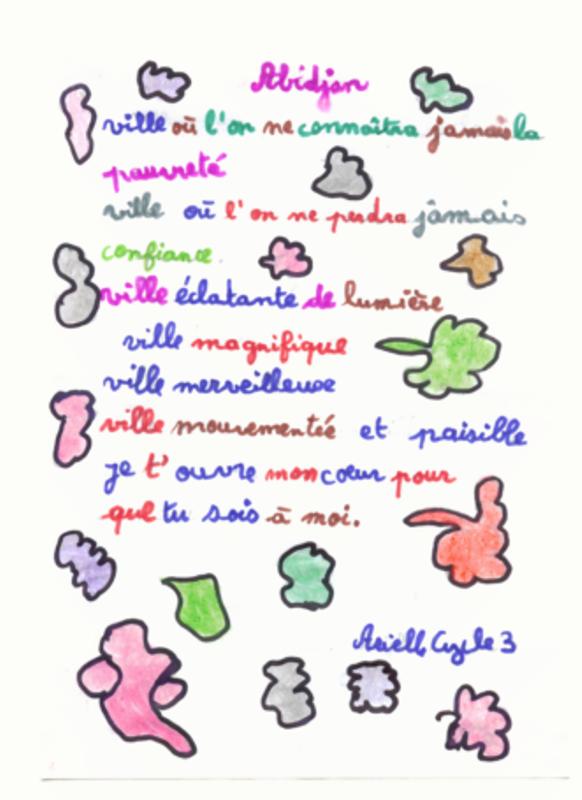 Abidjan
ville où l'on ne connaîtra jamais la
pauvreté
ville où l'on ne perdra jamais
confiance.
ville éclatante de lumière
ville magnifique
ville merveilleuse
ville mouvementée et paisible
je t'ouvre mon cœur pour
que tu sois à moi.
Ariell Cycle 3